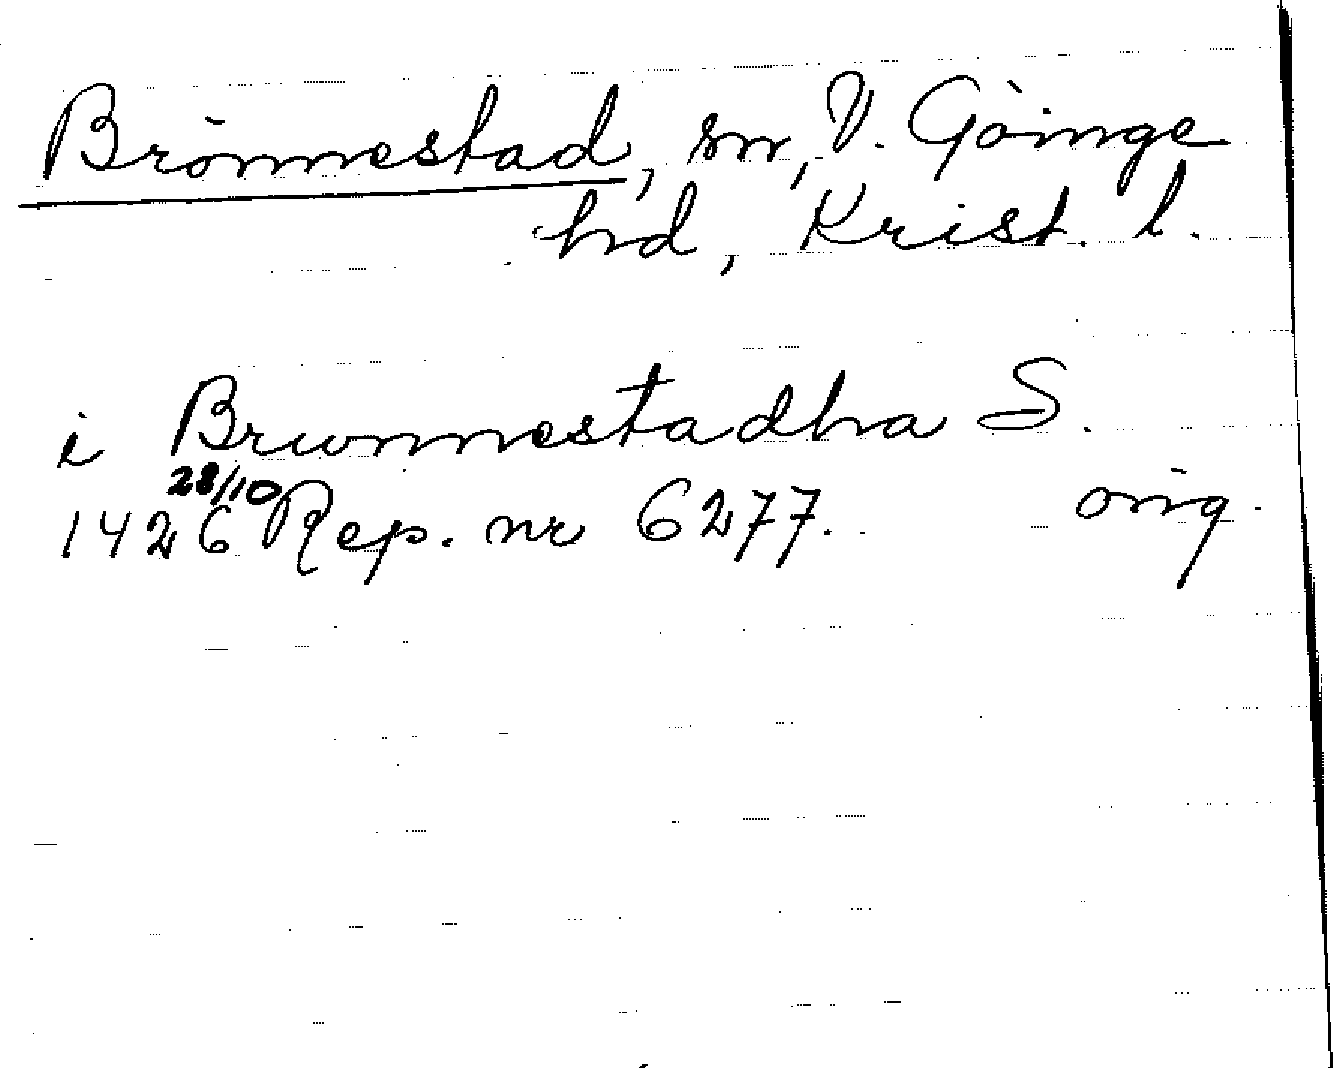 Brönnestad, sn, V. Göinge
hd, Krist. l.
i Brunnestadha S.
28/10
1426 Rep. nr 6277. orig.